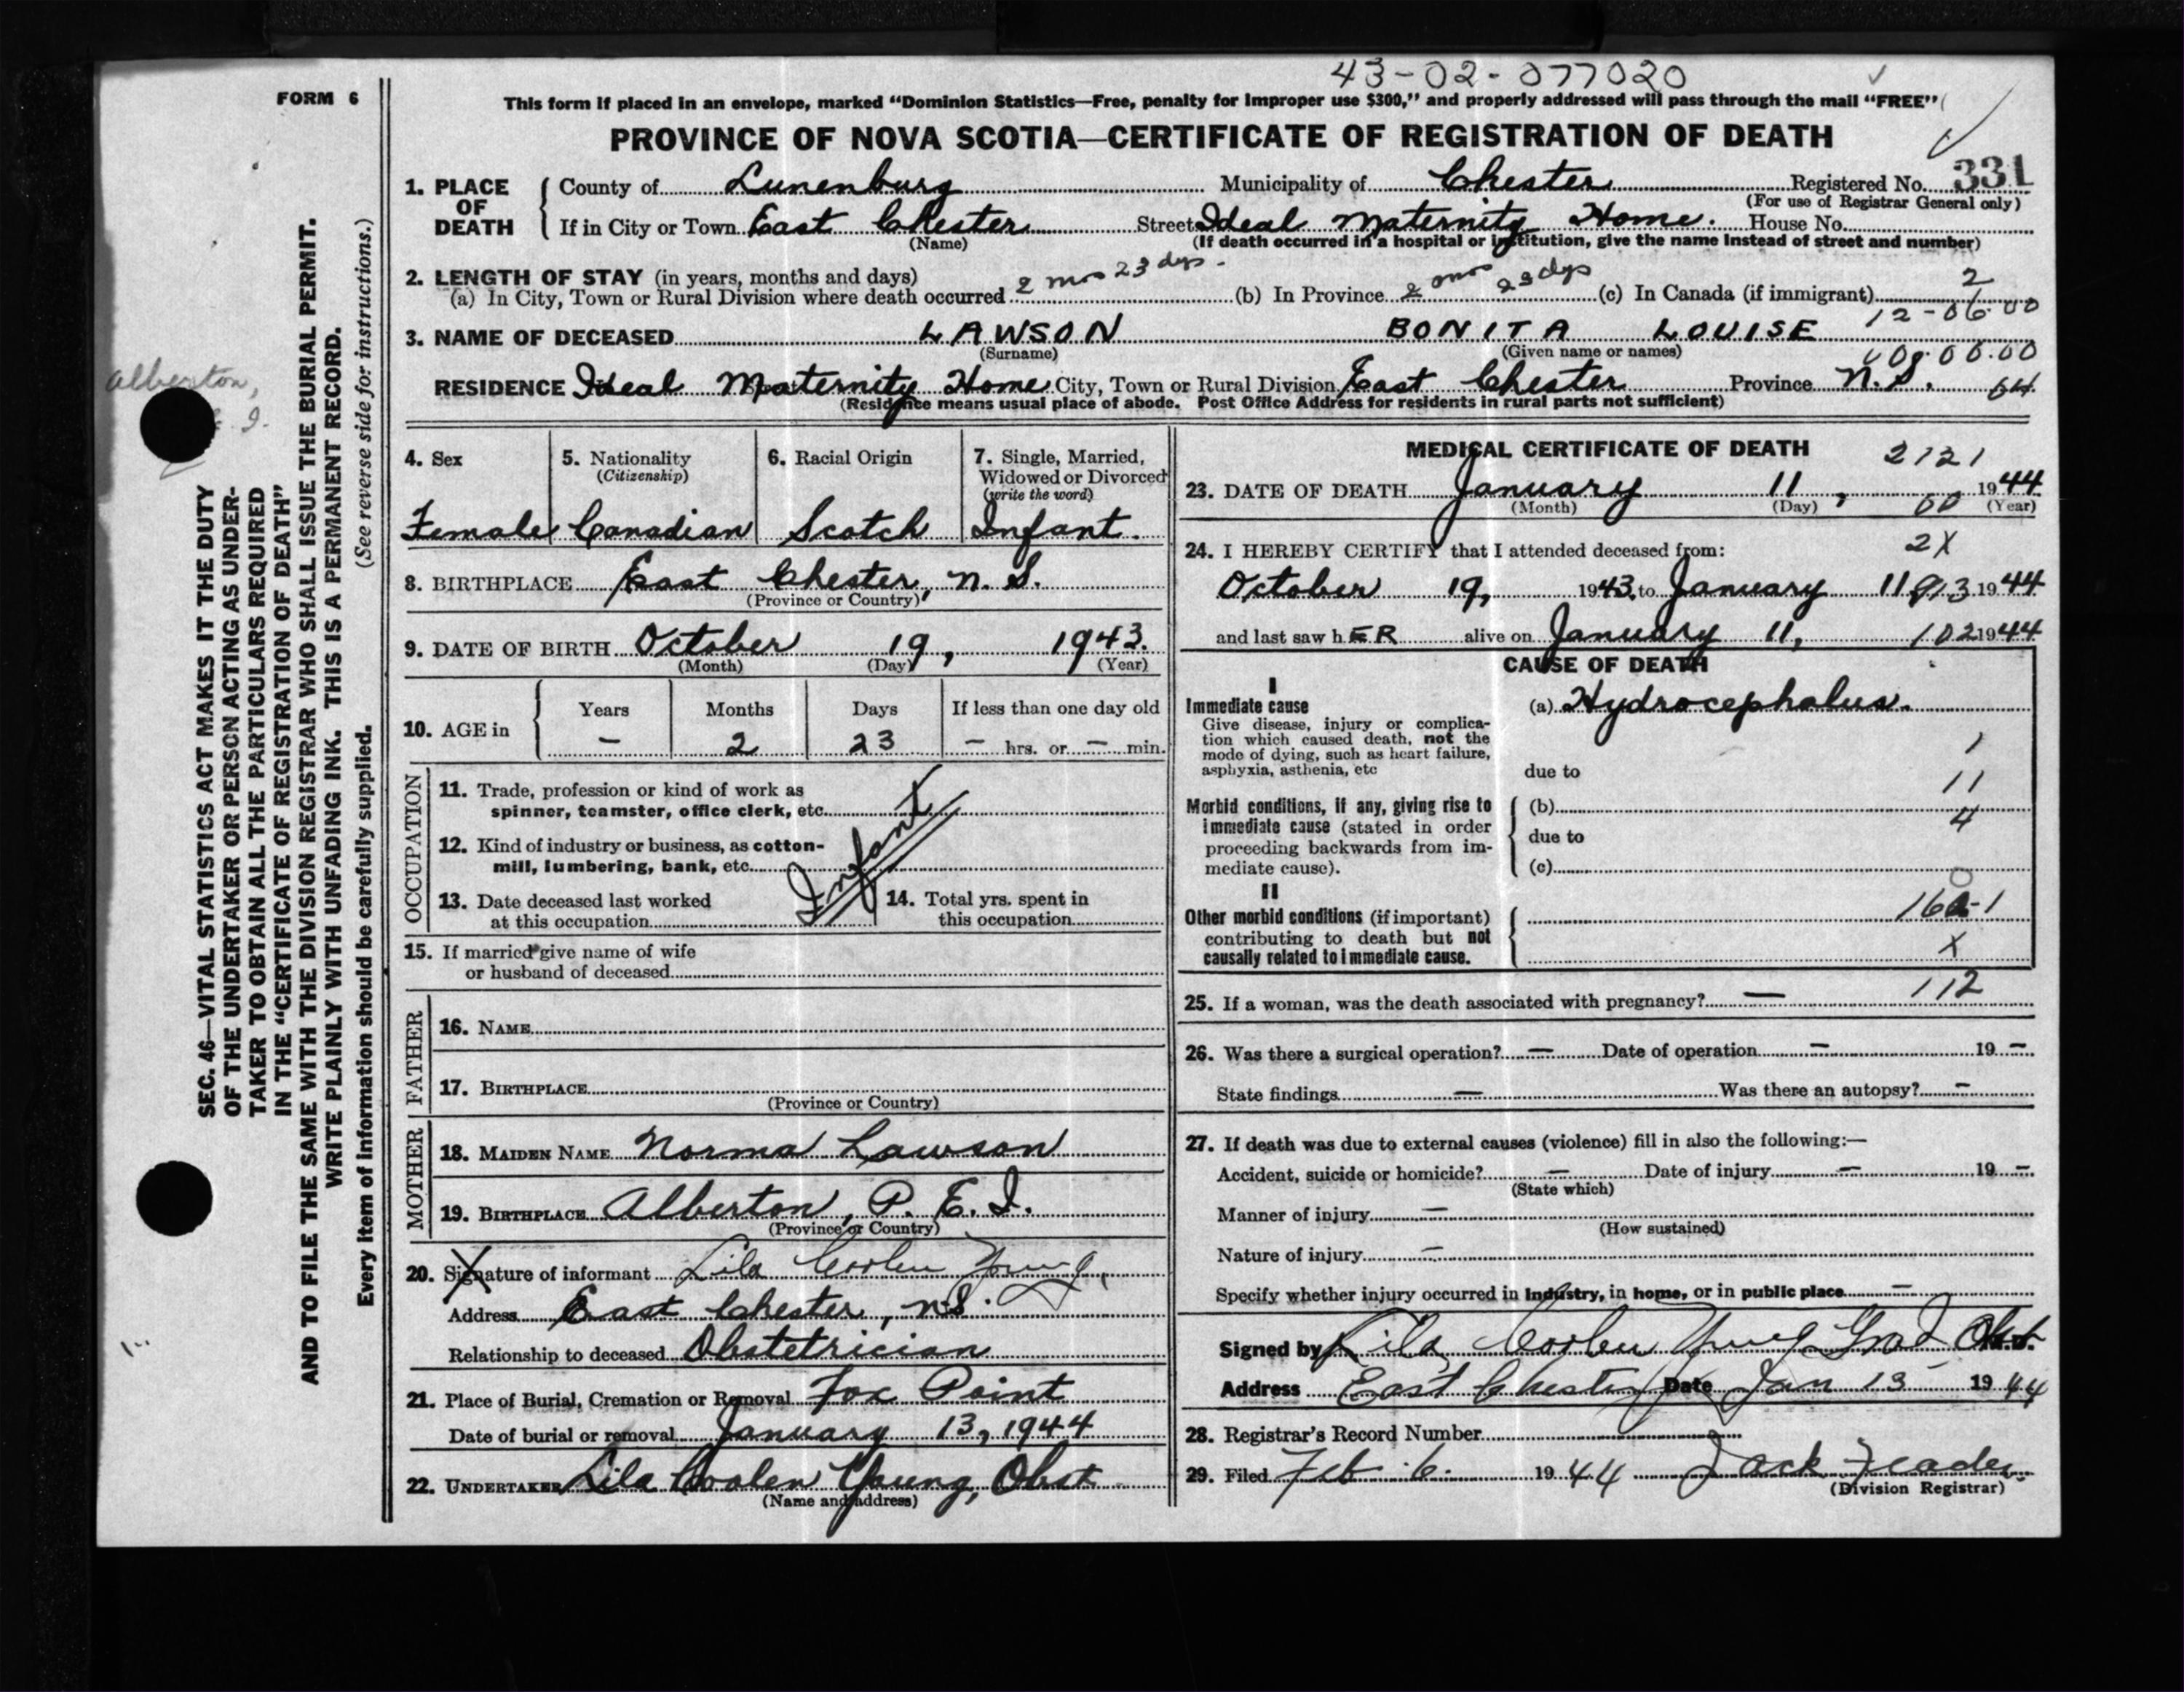 43-02-077020
FORM 6
This form if placed in an envelope, marked "Dominion Statistics—Free, penalty for improper use $300," and properly addressed will pass through the mail "FREE"
PROVINCE OF NOVA SCOTIA—CERTIFICATE OF REGISTRATION OF DEATH
1. PLACE OF DEATH County of Lunenburg Municipality of Chester Registered No. 331
(For use of Registrar General only)
If in City or Town East Chester Street Ideal Maternity Home. House No.
(Name) (If death occurred in a hospital or institution, give the name instead of street and number)
2. LENGTH OF STAY (in years, months and days)
(a) In City, Town or Rural Division where death occurred 2 mos 23 dys - (b) In Province 2 mos 23 dys (c) In Canada (if immigrant) 2
12-06-00
3. NAME OF DECEASED LAWSON BONITA LOUISE
(Surname) (Given name or names) 00.00
RESIDENCE Ideal Maternity Home City, Town or Rural Division East Chester Province N.S. 64
(Residence means usual place of abode. Post Office Address for residents in rural parts not sufficient)
4. Sex 5. Nationality 6. Racial Origin 7. Single, Married,
(Citizenship) Widowed or Divorced
(write the word)
Female Canadian Scotch Infant.
8. BIRTHPLACE East Chester, N.S.
(Province or Country)
9. DATE OF BIRTH October 19, 1943.
(Month) (Day) (Year)
10. AGE in Years Months Days If less than one day old
– 2 23 – hrs. or – min.
OCCUPATION
11. Trade, profession or kind of work as
spinner, teamster, office clerk, etc.
12. Kind of industry or business, as cotton-
mill, lumbering, bank, etc.
Infant
13. Date deceased last worked 14. Total yrs. spent in
at this occupation this occupation
15. If married give name of wife
or husband of deceased
FATHER
16. NAME
17. BIRTHPLACE
(Province or Country)
MOTHER
18. MAIDEN NAME Norma Lawson
19. BIRTHPLACE Alberton, P. E. I.
(Province or Country)
20. Signature of informant Lila Coolen Young
Address East Chester, N.S.
Relationship to deceased Obstetrician
21. Place of Burial, Cremation or Removal Fox Point
Date of burial or removal January 13, 1944
22. UNDERTAKER Lila Coolen Young, Obst.
(Name and address)
MEDICAL CERTIFICATE OF DEATH 2121
23. DATE OF DEATH January 11, 1944
(Month) (Day) 00 (Year)
24. I HEREBY CERTIFY that I attended deceased from: 2X
October 19, 1943 to January 11 913 1944
and last saw hER alive on January 11, 102 1944
CAUSE OF DEATH
I
Immediate cause (a) Hydrocephalus.
Give disease, injury or complica-
tion which caused death, not the
mode of dying, such as heart failure,
asphyxia, asthenia, etc
1
due to
11
Morbid conditions, if any, giving rise to (b)
immediate cause (stated in order 4
proceeding backwards from im- due to
mediate cause). (c)
II
Other morbid conditions (if important)
contributing to death but not
causally related to immediate cause. X
112
25. If a woman, was the death associated with pregnancy? —
26. Was there a surgical operation? — Date of operation — 19 –
State findings — Was there an autopsy? –
27. If death was due to external causes (violence) fill in also the following:—
Accident, suicide or homicide? — Date of injury — 19 –
(State which)
Manner of injury –
(How sustained)
Nature of injury –
Specify whether injury occurred in industry, in home, or in public place –
Signed by Lila Coolen Young Grad Obst. M.D.
Address East Chester Date Jan 13 1944
28. Registrar's Record Number
29. Filed Feb. 6. 1944 Jack
(Division Registrar)
Alberton,
SEC. 46—VITAL STATISTICS ACT MAKES IT THE DUTY
OF THE UNDERTAKER OR PERSON ACTING AS UNDER-
TAKER TO OBTAIN ALL THE PARTICULARS REQUIRED
IN THE "CERTIFICATE OF REGISTRATION OF DEATH"
AND TO FILE THE SAME WITH THE DIVISION REGISTRAR WHO SHALL ISSUE THE BURIAL PERMIT.
WRITE PLAINLY WITH UNFADING INK. THIS IS A PERMANENT RECORD.
Every item of information should be carefully supplied. (See reverse side for instructions.)